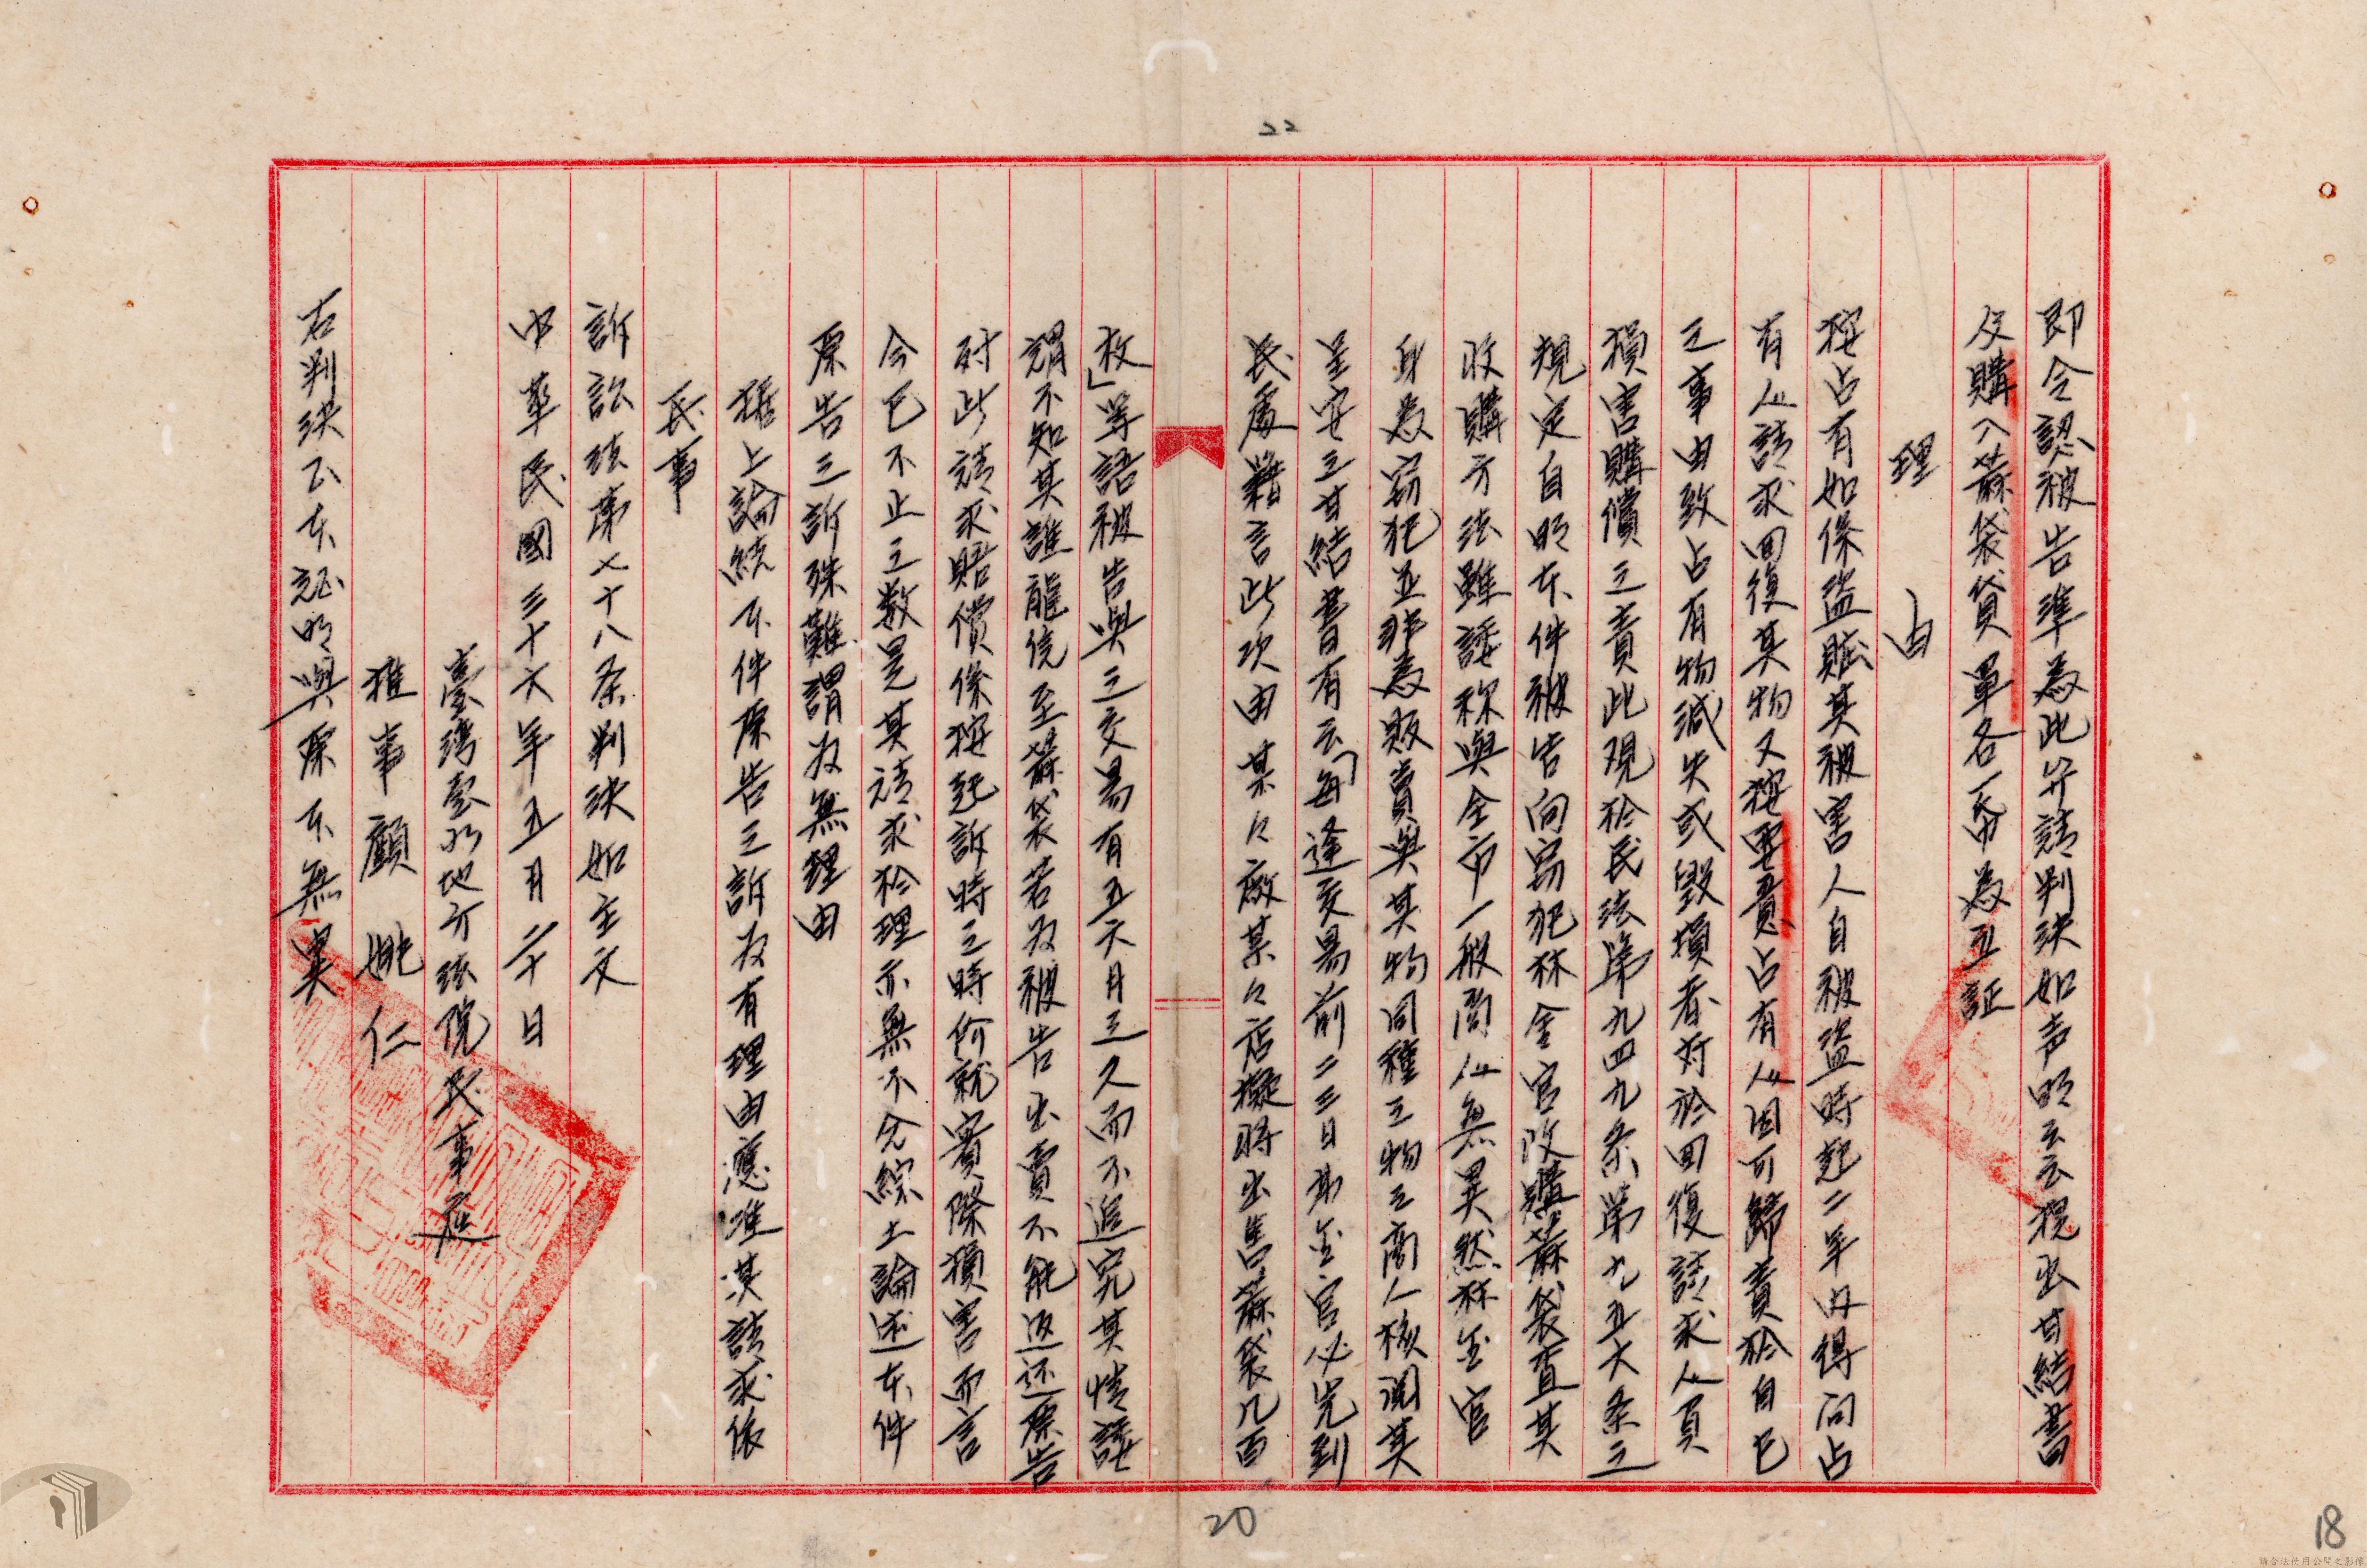 22
即令認被告準為此并請判決如声明云云提出甘結書
及購入蔴袋貨單各一帋為立証
理由
按占有如係盜賍其被害人自被盜時起二年内得向占
有人請求回復其物又按惡意占有人因可歸責於自己
之事由致占有物減失或毀損者对於回復請求人負
損害賠償之責此观於民法第九四九条第九五六条之
規定自明本件被告向窃犯林金官改購蔴袋查其
收購方法雖諉称與全市一般商人無異然林金官
身為窃犯並非為販賣與其物同種之物之商人核閱其
呈安之甘結書有云「每逢交易前二三日林金官必先到
民處難言此次由某々廠某々店擬將出售蔴袋几百
枚」等語被告與之交易有五六月之久而不追究其情諉
謂不知其誰能信至蔴袋若為被告出賣不能返还原告
对此請求賠償係按起訴時之時价就實際損害而言
今已不止之数是其請求於理亦無不允綜上論述本件
原告之訴殊難謂為無理由
據上論結本件原告之訴為有理由應准其請求依
民事
訴訟法第七十八条判決如主文
中華民國三十六年五月二十日
臺灣臺北地方法院民事庭
推事顧姚仁
右判決正本証明與原本無異
20
18
請合法使用公開之影像